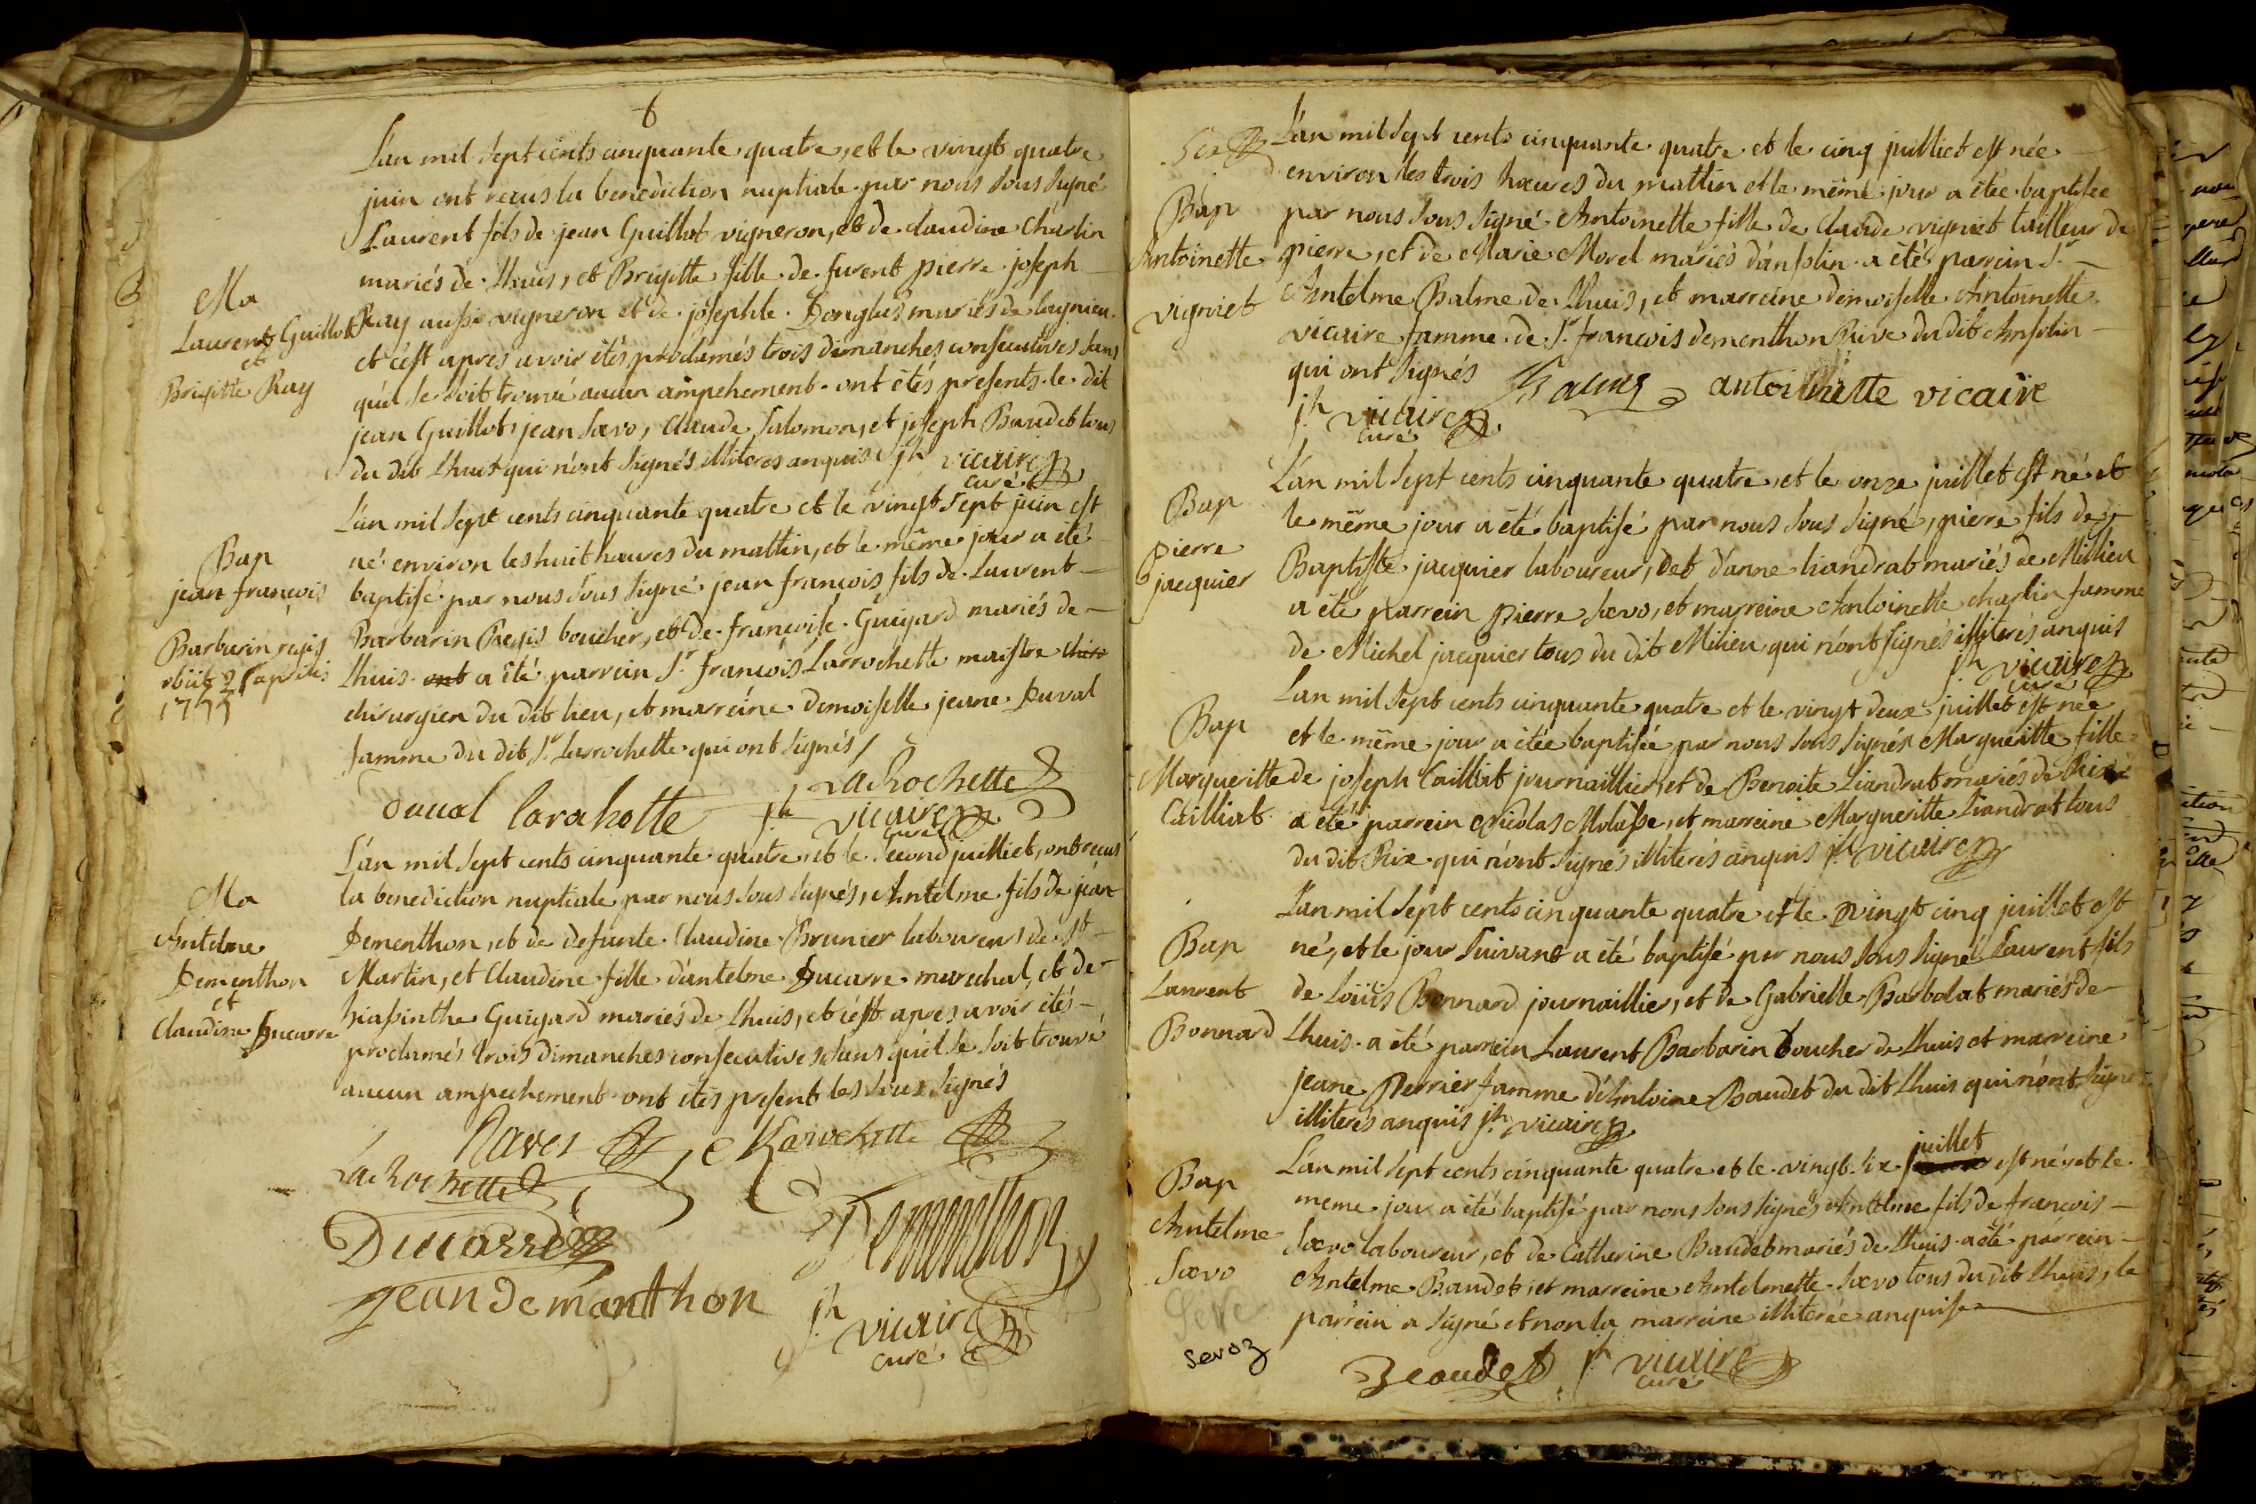 6
L'an mil sept cents cinquante quatre, et le vingt quatre
juin ont recus la benediction nuptiale par nous sous signé
Laurent fils de jean Guillot vigneron, et de claudine Charlin
mariés de Lhuis, et Brigitte fille de furent pierre joseph
Ma
Laurent Guillot
et
Brigitte Ray
Ray aussi vigneron et de josephte Donglus mariés de lagnieu
et c'est apres avoir étés proclamés trois dimanches consecutives sans
qu'il se soit trouvé aucun ampehement. ont étés presents le dit
jean Guillot, jean Sævo, Claude Salomon, et joseph Baudet tous
du dit Lhuit qui n'ont signés illiteres anquis jh vicaire
curé
L'an mil sept cents cinquante quatre et le vingt sept juin est
né environ les huit heures du mattin, et le même jour a été
Bap
jean francois
Barbarin regis
obiit 2
1755
baptisé par nous sous signé jean francois fils de Laurent
Barbarin Regis boucher, et de francoise Guigard mariés de
Lhuis ont a été parrein Sr francois Larrochette maistre chiro
chirurgien du dit lieu, et marreine demoiselle jeane Duval
famme du dit Sr Larrochette qui ont signés
LaRochette
Duual larahotte jh vicaire
curé
L'an mil sept cents cinquante quatre, et le second juilliet, ont recus
Ma
Antelme
Dementhon
et
Claudine Ducarre
la benediction nuptiale par nous sous signés, Antelme fils de jean
Dementhon, et de defunte Claudine Brunier laboureurs de St
Martin, et Claudine fille d'antelme Ducarre marechal, et de
hiasinthe Guigard mariés de Lhuis, et c'est apres avoir étés
proclamés trois dimanches consecutives sans qu'il se soit trouvé
aucun ampechement ont étés present les sous signés
Naves
LaRochette
Ducarre
Dementhon
jean demanthon
jh vicaire
curé
L'an mil sept cents cinquante quatre et le cinq juilliet est née
environ les trois heures du mattin et le même jour a étée baptisée
Bap
Antoinette
vigniet
par nous sous signé Antoinette fille de Claude vigniet tailleur de
pierre, et de Marie Morel mariés d'ansolin a étés parrein Sr
Antelme Balme de Lhuis, et marreine demoiselle Antoinette
vicaire famme de Sr francois dementhon Rive du dit Ansolin
qui ont signés
Balme antoinette vicaire
jh vicaire
curé
L'an mil sept cents cinquante quatre, et le onze juillet est né et
Bap
pierre
jacquier
le même jour a été baptisé par nous sous signé, piere fils de
Baptiste jacquier laboureur, et d'anne liandrat mariés de Milieu
a été parrein pierre Sævo, et marreine Antoinette charlin famme
de Michel jacquier tous du dit Milieu, qui n'ont signés illiterés anquis
jh vicaire
curé
L'an mil sept cents cinquante quatre et le vingt deux juillet est née
Bap
Margueritte
Cailliat
et le même jour a étée baptisée par nous sous signés Margueritte fille
de joseph Cailliat journaillier, et de Benoite Liandrat mariés de Rix
a été parrein Nicolas Molasse, et marreine Margueritte Liandrat tous
du dit Rix qui n'ont signés illiterés anquis jh vicaire
L'an mil sept cents cinquante quatre et le vingt cinq juillet est
Bap
Laurent
Bonnard
né, et le jour suivant a été baptisé par nous sous signé Laurent fils
de Loüis Bonnard journaillier, et de Gabrielle Barbolat mariés de
Lhuis a été parrein Laurent Barbarin boucher de Lhuis et marreine
jeane Perrier famme d'Antoine Baudet du dit Lhuis qui n'ont signes
illiterés anquis jh vicaire
L'an mil sept cents cinquante quatre et le vingt six juillet est né, et le
Bap
Antelme
Sævo
Seve
Sevoz
meme jour a été baptisé par nous sous signés Antelme fils de francois
Sævo laboureur, et de Catherine Baudet mariés de Lhuis a été parrein
Antelme Baudet, et marreine Antelmette Sævo tous du dit Lhuis, le
parrein a signé et non la marreine illiterée anquise
Beaudet jh vicaire
curé